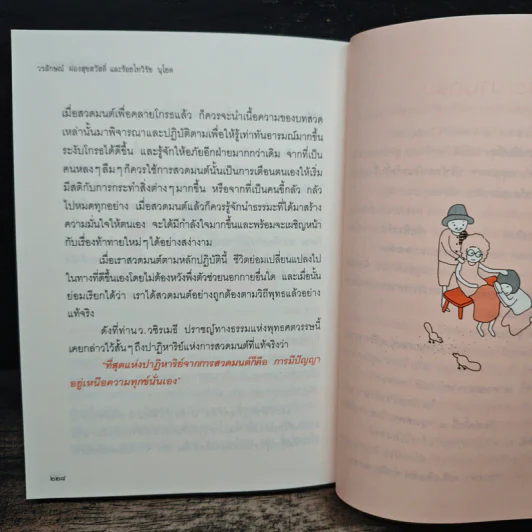 วรลักษณ์ ผ่องสุขสวัสดิ์ และร้อยไทวิรัช นุโยค
เมื่อสวดมนต์เพื่อคลายโกรธแล้ว ก็ควรจะนำเนื้อความของบทสวด
เหล่านั้นมาพิจารณาและปฏิบัติตามเพื่อให้รู้เท่าทันอารมณ์มากขึ้น
ระงับโกรธได้ดีขึ้น และรู้จักให้อภัยอีกฝ่ายมากกว่าเดิม จากที่เป็น
คนหลงๆ ลืมๆ ก็ควรใช้การสวดมนต์นั้นเป็นการเตือนตนเองให้เริ่ม
มีสติกับการกระทำสิ่งต่างๆ มากขึ้น หรือจากที่เป็นคนขี้กลัว กลัว
ไปหมดทุกอย่าง เมื่อสวดมนต์แล้วก็ควรรู้จักนำธรรมะที่ได้มาสร้าง
ความมั่นใจให้ตนเอง จะได้มีกำลังใจมากขึ้นและพร้อมจะเผชิญหน้า
กับเรื่องท้าทายใหม่ๆ ได้อย่างสง่างาม
เมื่อเราสวดมนต์ตามหลักปฏิบัตินี้ ชีวิตย่อมเปลี่ยนแปลงไป
ในทางที่ดีขึ้นเองโดยไม่ต้องหวังพึ่งตัวช่วยนอกกายอื่นใด และเมื่อนั้น
ย่อมเรียกได้ว่า เราได้สวดมนต์อย่างถูกต้องตามวิถีพุทธแล้วอย่าง
แท้จริง
ดังที่ท่าน ว.วชิรเมธี ปราชญ์ทางธรรมแห่งพุทธศตวรรษนี้
เคยกล่าวไว้สั้นๆ ถึงปาฏิหาริย์แห่งการสวดมนต์ที่แท้จริงว่า
"ที่สุดแห่งปาฏิหาริย์จากการสวดมนต์ก็คือ การมีปัญญา
อยู่เหนือความทุกข์นั่นเอง"
๒๒๘